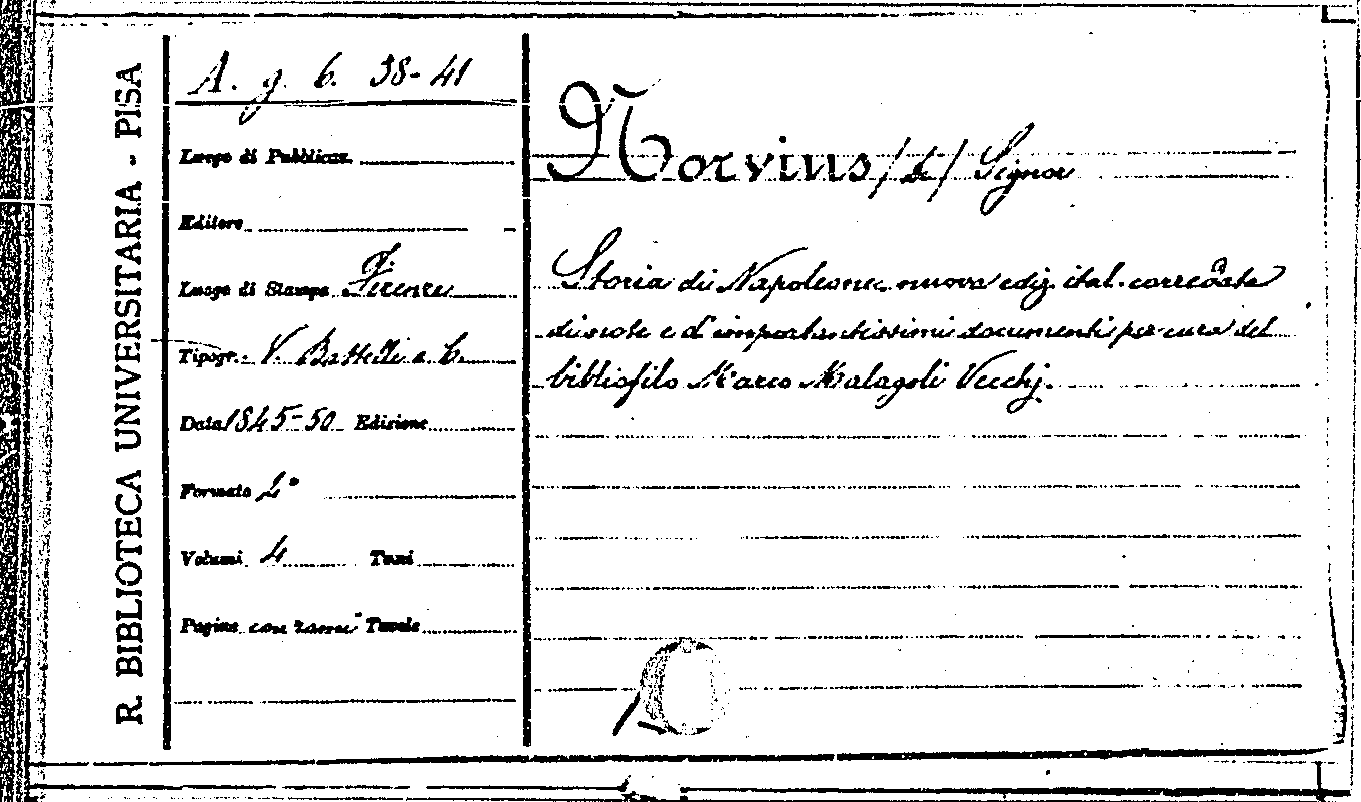 R. BIBLIOTECA UNIVERSITARIA - PISA
A. g. 6. 38-41
Luogo di Pubblicaz.
Editore
Luogo di Stampa Firenze
Tipogr. V. Battelli e C.
Data 1845-50 Edizione
Formato 4°
Volumi 4 Tomi
Pagine con rami Tavole
Norvins /de/ Signor
Storia di Napoleone nuova ediz. ital. corredata
di note e d'importantissimi documenti per cura del
bibliofilo Marco Malagoli Vecchj.